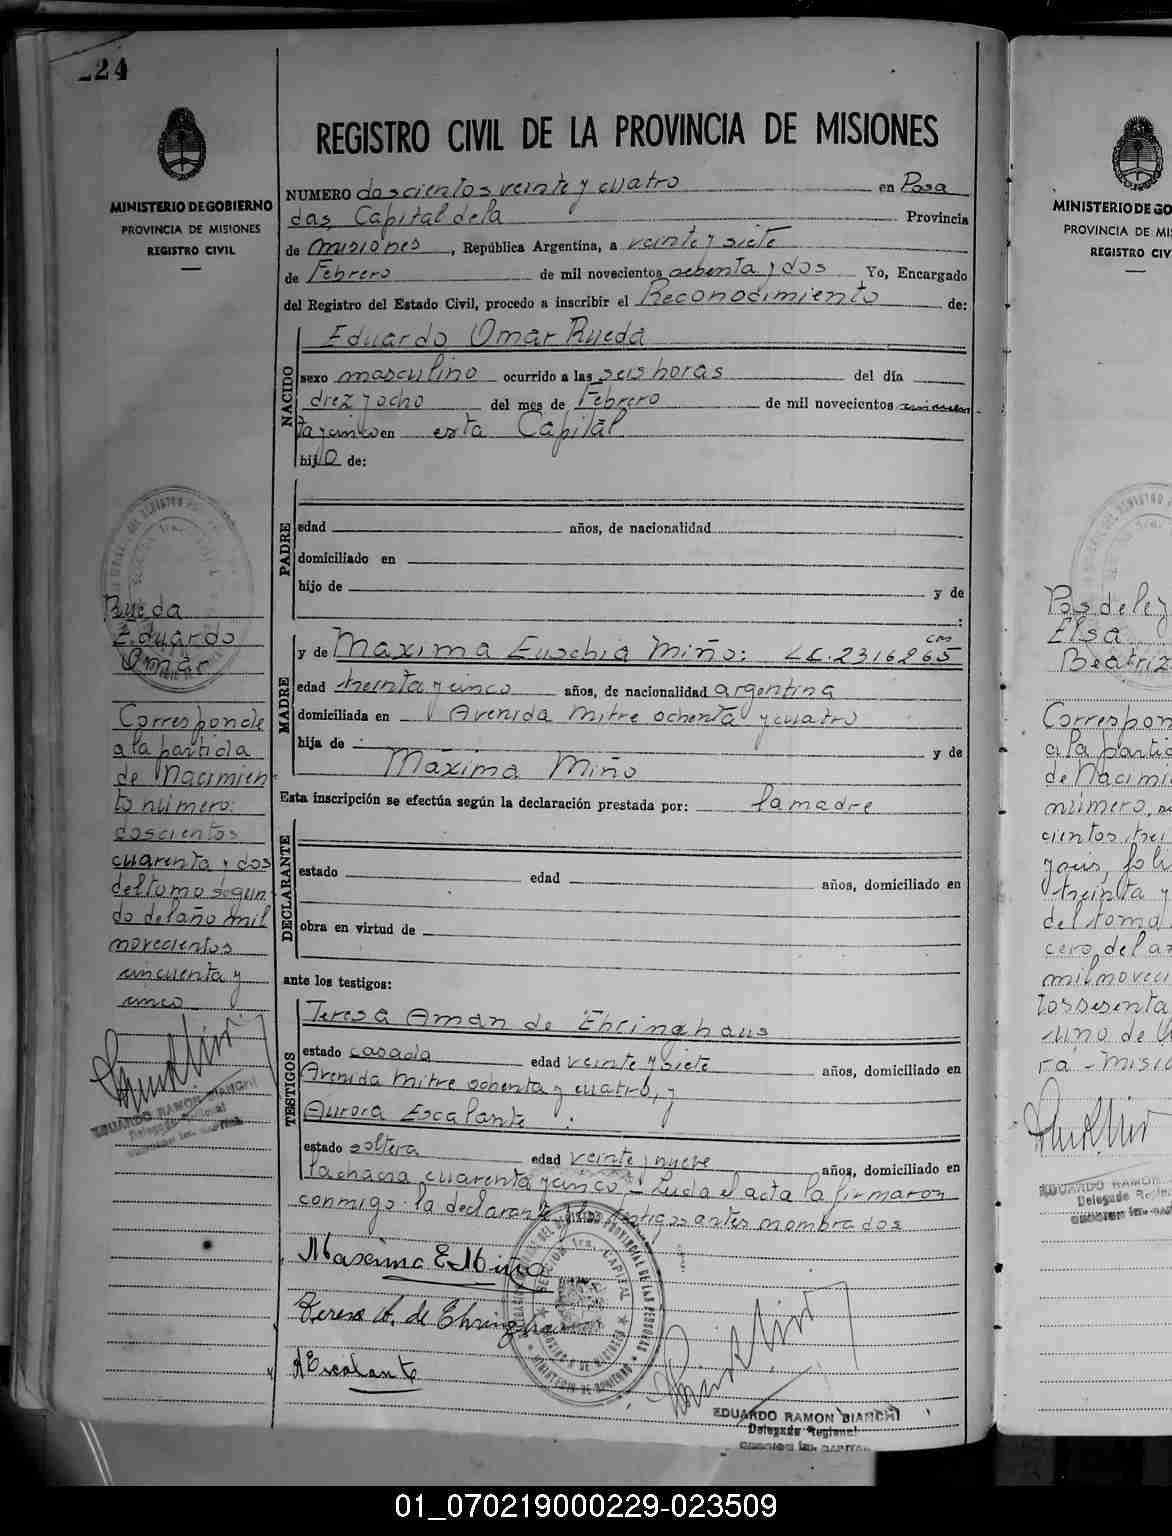 224
MINISTERIO DE GOBIERNO
PROVINCIA DE MISIONES
REGISTRO CIVIL
REGISTRO CIVIL DE LA PROVINCIA DE MISIONES
NUMERO doscientos veinte y cuatro en Posa
das, Capital de la Provincia
de Misiones, República Argentina, a veinte y siete
de Febrero de mil novecientos ochenta y dos Yo, Encargado
del Registro del Estado Civil, procedo a inscribir el Reconocimiento de:
NACIDO
Eduardo Omar Rueda
sexo masculino ocurrido a las seis horas del día
diez y ocho del mes de Febrero de mil novecientos cincuen
ta y cinco en esta Capital
hijo de:
PADRE
edad años, de nacionalidad
domiciliado en
hijo de y de
MADRE
y de Maxima Eusebia Miño: L.C. 2316265
edad treinta y cinco años, de nacionalidad argentina
domiciliada en Avenida Mitre ochenta y cuatro
hija de y de
Máxima Miño
Esta inscripción se efectúa según la declaración prestada por: la madre
DECLARANTE
estado edad años, domiciliado en
obra en virtud de
ante los testigos:
TESTIGOS
Teresa Aman de Ehringhaus
estado casada edad veinte y siete años, domiciliado en
Avenida Mitre ochenta y cuatro, y
Aurora Escalante
estado soltera edad veinte y nueve años, domiciliado en
la chacra cuarenta y cinco - Leida el acta la firmaron
conmigo la declarante y los testigos antes nombrados
Maxima E. Miño
Teresa A. de Ehringhaus
A Escalante
EDUARDO RAMON BIANCHI
Delegado Regional
SECCION 1ra. CAPITAL
Rueda
Eduardo
Omar
Corresponde
a la partida
de Nacimien
to número:
doscientos
cuarenta y dos
del tomo segun
do del año mil
novecientos
cincuenta y
cinco
EDUARDO RAMON BIANCHI
Delegado Regional
SECCION 1ra. CAPITAL
MINISTERIO DE GO
PROVINCIA DE MI
REGISTRO CIV
Pos de ley
Elsa
Beatriz
Correspon
a la partid
de Nacimi
número, 
cientos trei
y seis, foli
treinta y
del tomo
cero, del a
mil noveci
tos sesenta
uno de 
ra - Misio
EDUARDO RAMON
Delegado Regio
SECCION 1ra. CAP
01_070219000229-023509